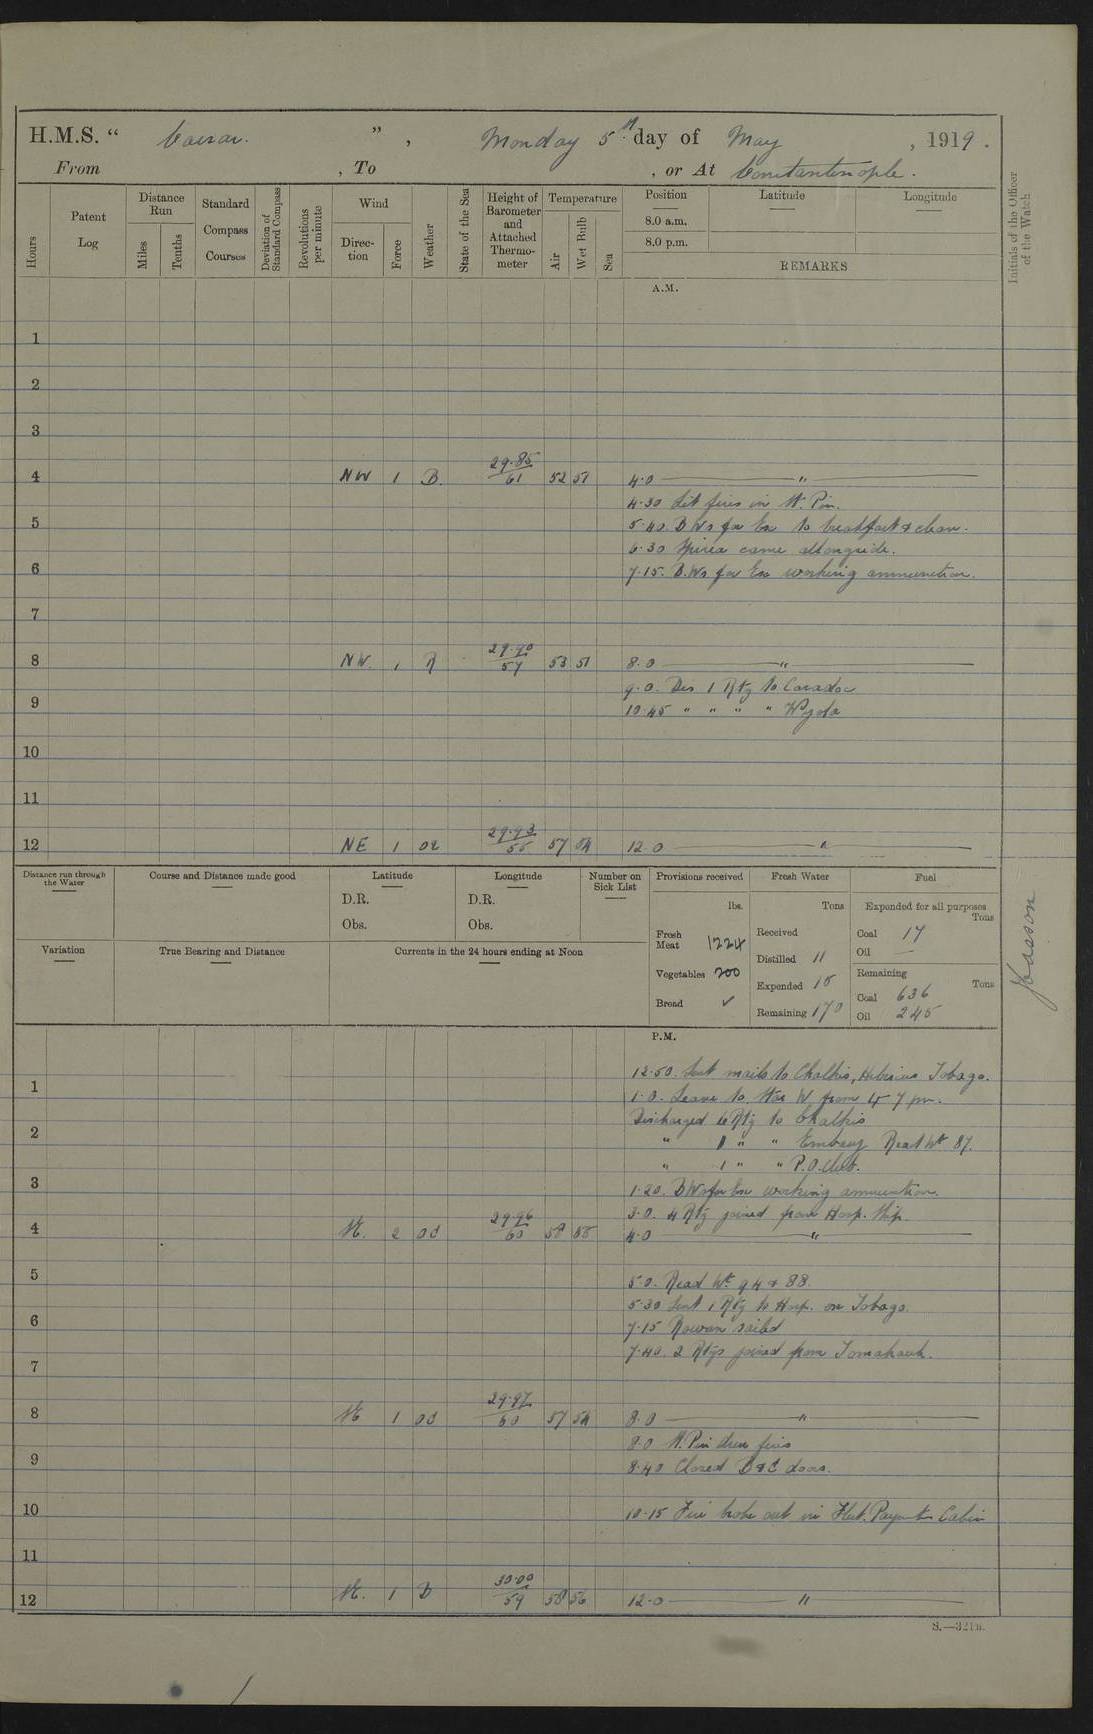 H.M.S. “ Caesar. ” , Monday 5th day of May , 1919 .
From , To , or At Constantinople .
Hours
Patent Log
Distance Run
Miles
Tenths
Standard Compass Courses
Deviation of Standard Compass
Revolutions per minute
Wind
Direction
Force
Weather
State of the Sea
Height of Barometer and Attached Thermometer
Temperature
Air
Wet Bulb
Sea
Position
8.0 a.m.
8.0 p.m.
Latitude
Longitude
REMARKS
Initials of the Officer of the Watch
A.M.
1
2
3
4 NW 1 B. 29.85 61 52 51 4.0 "
4.30 Lit fires in St. Pin.
5 5.40. D Ws for Em to breakfast & clean.
6.30 Spirea came alongside.
6 7.15. D.Ws for Em working ammunition.
7
8 NW. 1 R 29.90 57 53 51 8.0 "
9.0. Dis 1 Rtg to Caradoc
9 10.45 " " " "
10
11
12 NE 1 29.93 12.0 "
Distance run through the Water
Course and Distance made good
Latitude
D.R.
Obs.
Longitude
D.R.
Obs.
Number on Sick List
Provisions received
lbs.
Fresh Meat 1224
Vegetables 200
Bread ✓
Fresh Water
Tons
Received
Distilled 11
Expended 15
Remaining 170
Fuel
Expended for all purposes
Tons
Coal 17
Oil —
Remaining
Tons
Coal 636
Oil 245
Variation
True Bearing and Distance
Currents in the 24 hours ending at Noon
P.M.
12.50. Sent mails to Chalkis, Hibiscus Tobago.
1 1.0. Leave to Star W. from 4.7 pm.
Discharged 6 Rtg to Chalkis
2 " 1 " " Embassy Read Wt 87.
" 1 " " P.O. Club.
3 1.20. D Ws for Em working ammunition.
3.0. 4 Rtg joined from Hosp. Ship.
4 NE. 2 oc 29.96 60 58 55 4.0 "
5 5.0. Read Wt. 94 & 88.
5.30 Sent 1 Rtg to Hosp. on Tobago.
6 7.15 Rowan sailed
7.40. 2 Rtgs joined from Tomahawk.
7
8 NE 1 oc 29.97 60 57 54 8.0 "
8.0 St. Pin drew fires
9 8.40 Closed B & C doors.
10 10.15 Fire broke out in Fleet. Paymtr Cabin
11
12 NE. 1 B 30.00 59 58 56 12.0 "
S.—321B.